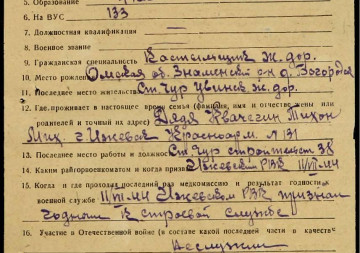 5. Образование
6. На ВУС 133
7. Должностная квалификация
8. Военное звание
9. Гражданская специальность ж. дор.
10. Место рождения Омская об. Знаменский р-н д.
11. Последнее место жительства Ст. Чур ж. дор.
12. Где проживает в настоящее время семья (фамилия, имя и отчество жены или
родителей и точный их адрес) Дядя Тихон
Мих. г. Ижевск Красноарм. № 131
13. Последнее место работы и должность Ст. Чур
14. Каким райгорвоенкоматом и когда призван Ижевским РВК 11/III-44
15. Когда и где проходил последний раз медкомиссию и результат годности к
военной службе 11/III-44 Ижевском РВК признан
годным к строевой службе
16. Участие в Отечественной войне (в составе какой последней части в качестве